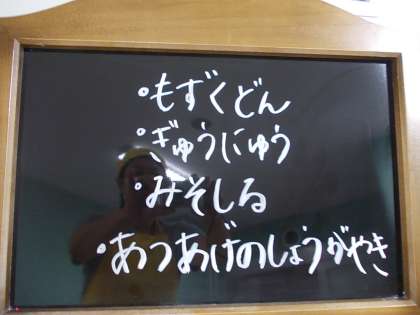 ・もずくどん
・ぎゅうにゅう
・みそしる
・あつあげのしょうがやき